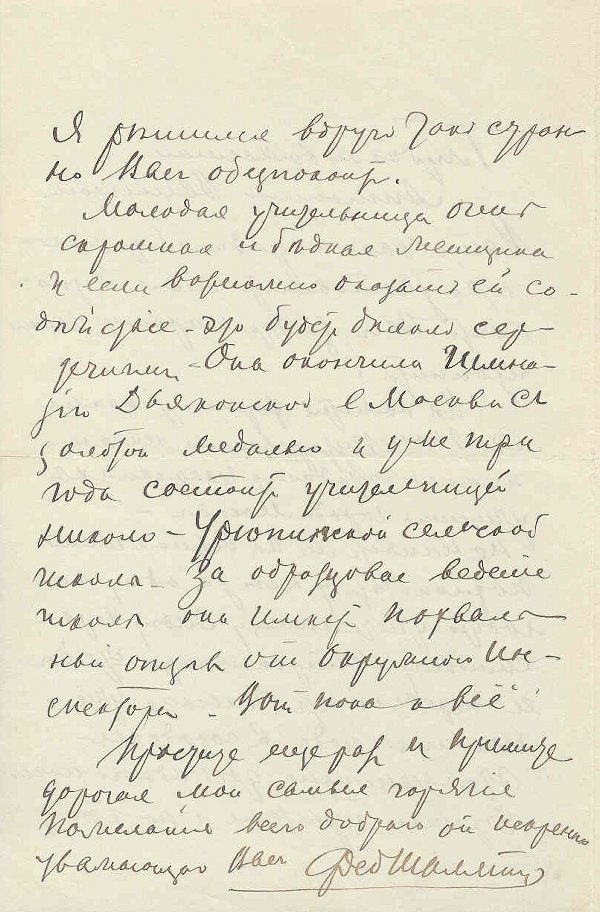 Я рѣшился вдругъ такъ стран-
но Васъ обезпокоить.
Молодая учительница очень
скромная и бѣдная женщина
и если возможно оказать ей со-
дѣйствіе - это будетъ дѣломъ сер-
дечнымъ - Она окончила Гимна-
зію Дьяконской в Москвѣ съ
золотой медалью и уже три
года состоитъ учительницей
Николо - Урюпинской сельской
школы. За образцовое веденіе
школы она имѣетъ похваль-
ный отзывъ отъ окружного Ин-
спектора - Вотъ пока и всё
Простите еще разъ и примите
дорогая мои самыя горячія
пожеланія всего добраго от искренно
уважающаго Васъ Фед Шаляпин